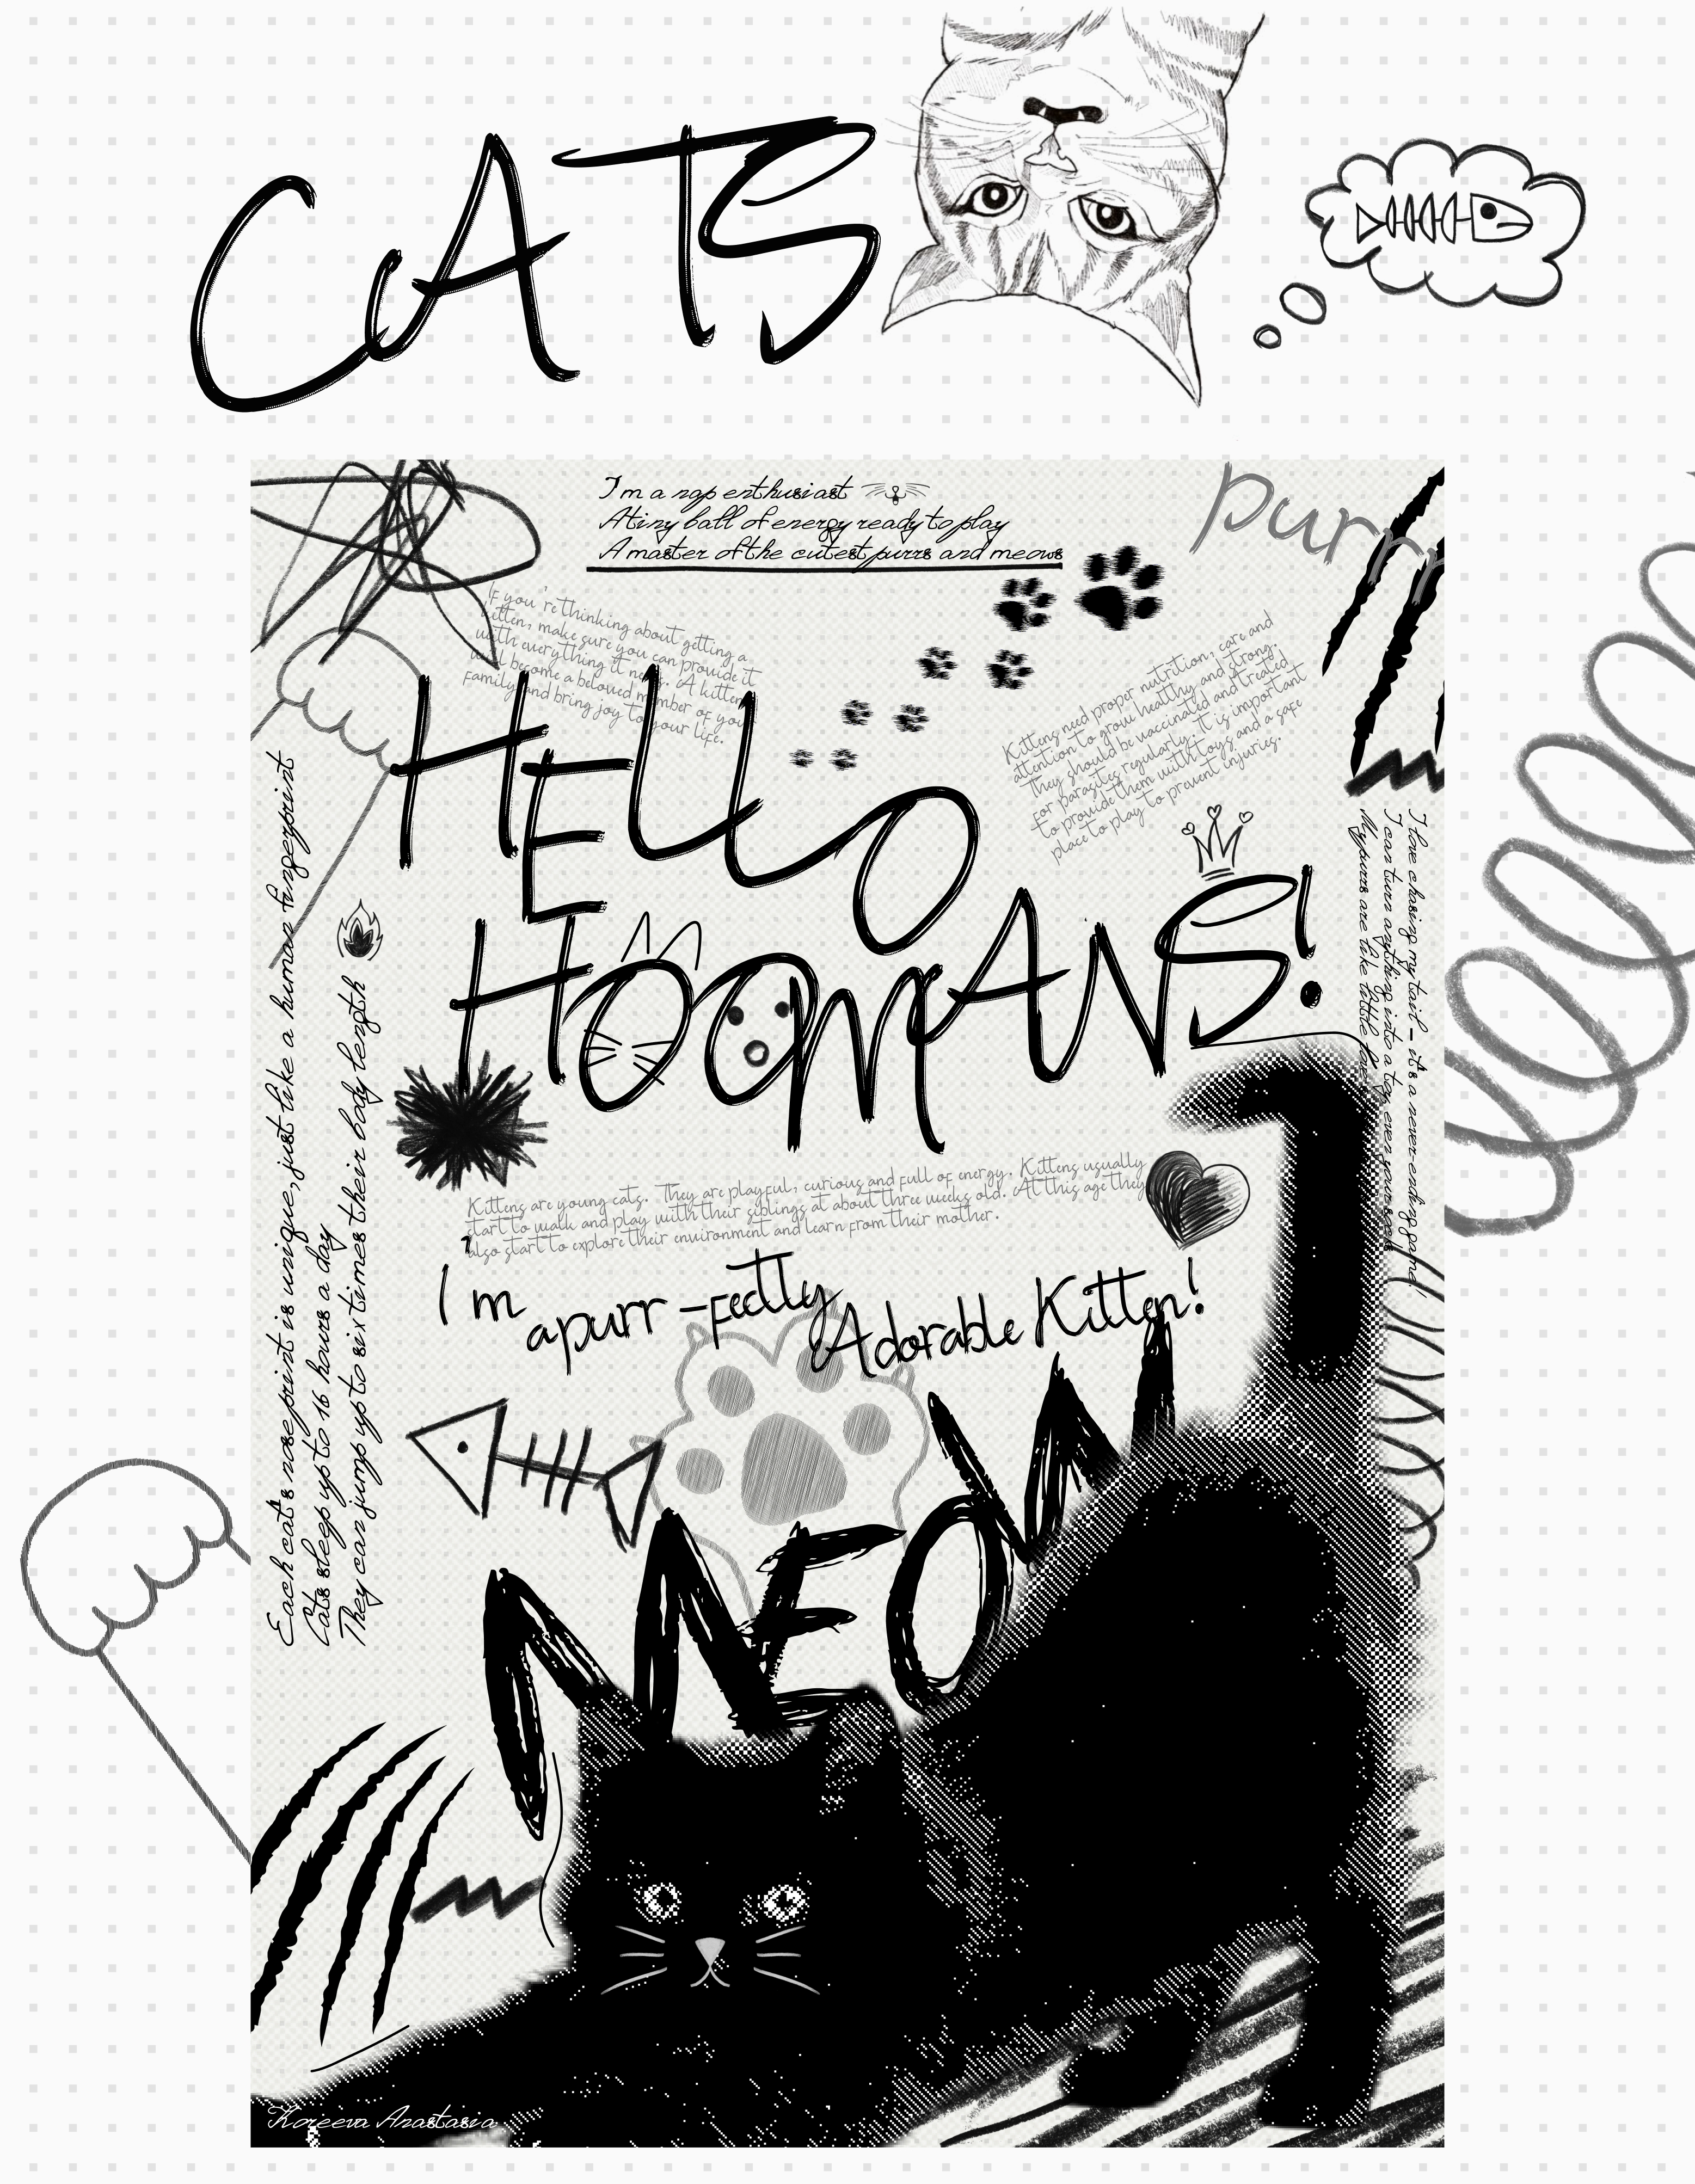 CATS
purrr
I'm a nap enthusiast
A tiny ball of energy ready to play
A master of the cutest purrs and meows
If you're thinking about getting a
kitten, make sure you can provide it
with everything it needs. A kitten
will become a beloved member of your
family and bring joy to your life.
Kittens need proper nutrition, care and
attention to grow healthy and strong.
They should be vaccinated and treated
for parasites regularly. It is important
to provide them with toys and a safe
place to play to prevent injuries.
HELLO
HOOMANS!
Each cat's nose print is unique, just like a human fingerprint
Cats sleep up to 16 hours a day
They can jump up to six times their body length
I love chasing my tail - it's a never-ending game!
I can turn anything into a toy, even your socks
My purrs are like little
Kittens are young cats. They are playful, curious and full of energy. Kittens usually
start to walk and play with their siblings at about three weeks old. At this age they
also start to explore their environment and learn from their mother.
I'm a purr-fectly Adorable Kitten!
MEOW
Koreeva Anastasia